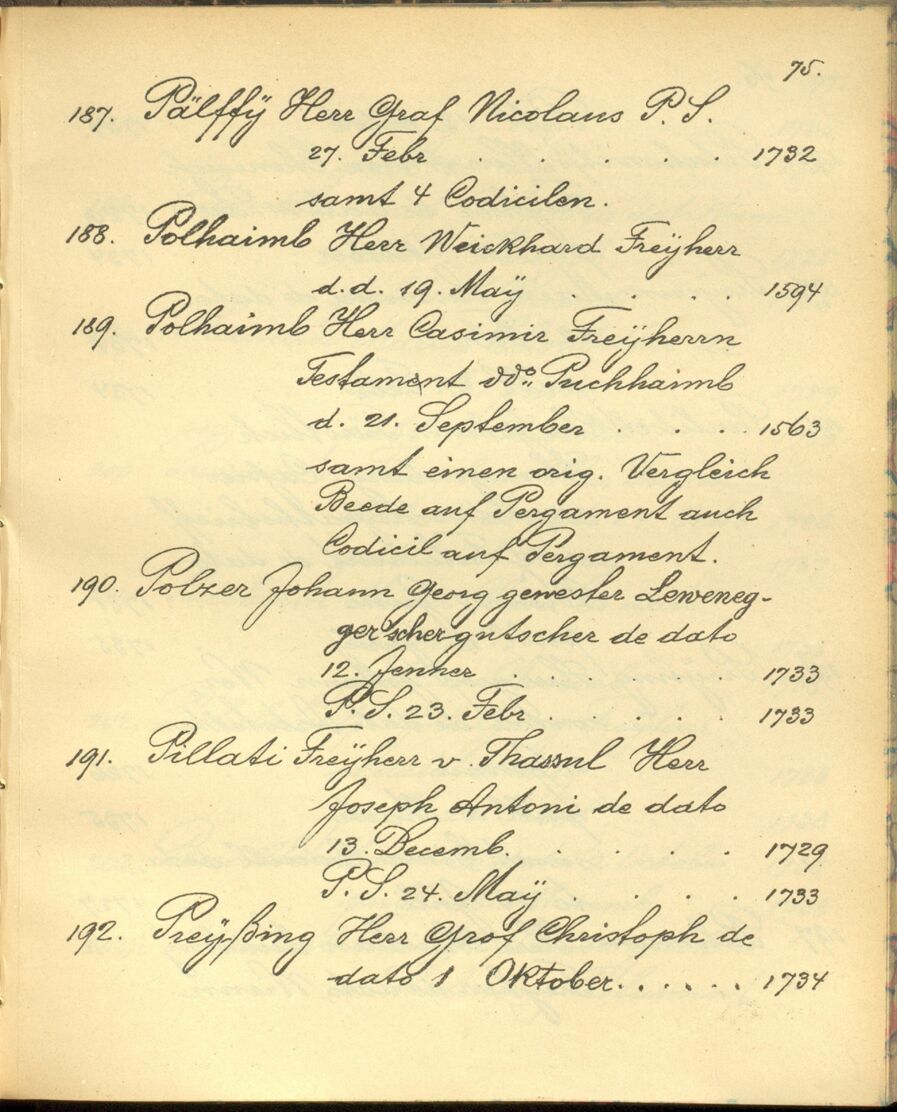 75.
187. Pälffÿ Herr Graf Nicolaus P. S.
27. Febr . . . . . . 1732
samt 4 Codicilen.
188. Polhaimb Herr Weickhard Freÿherr
d. d. 19. Maÿ . . . . 1594
189. Polhaimb Herr Casimir Freÿherrn
Testament ddo. Puchhaimb
d. 21. September . . . . 1563
samt einen orig. Vergleich
Beede auf Pergament auch
Codicil auf Pergament.
190. Polzer Johann Georg gewester Leweneg-
ger'scher gutscher de dato
12. Jenner . . . . . 1733
P. S. 23. Febr . . . . . 1733
191. Pillati Freÿherr v. Thassul Herr
Joseph Antoni de dato
13. Decemb. . . . . . 1729
P. S. 24. Maÿ . . . . . 1733
192. Preÿßing Herr Graf Christoph de
dato 1 Oktober. . . . . . 1734